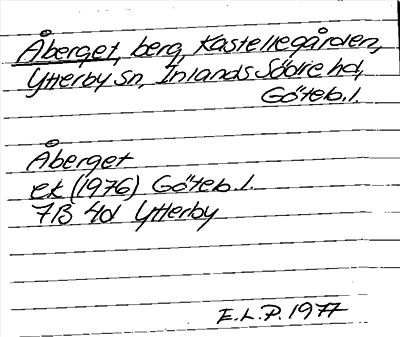 Åberget, berg, Kastellegården,
Ytterby sn, Inlands Södre hd,
Göteb.l.
Åberget
ek (1976) Göteb.l.
7B 4d Ytterby
E.L.P. 1977